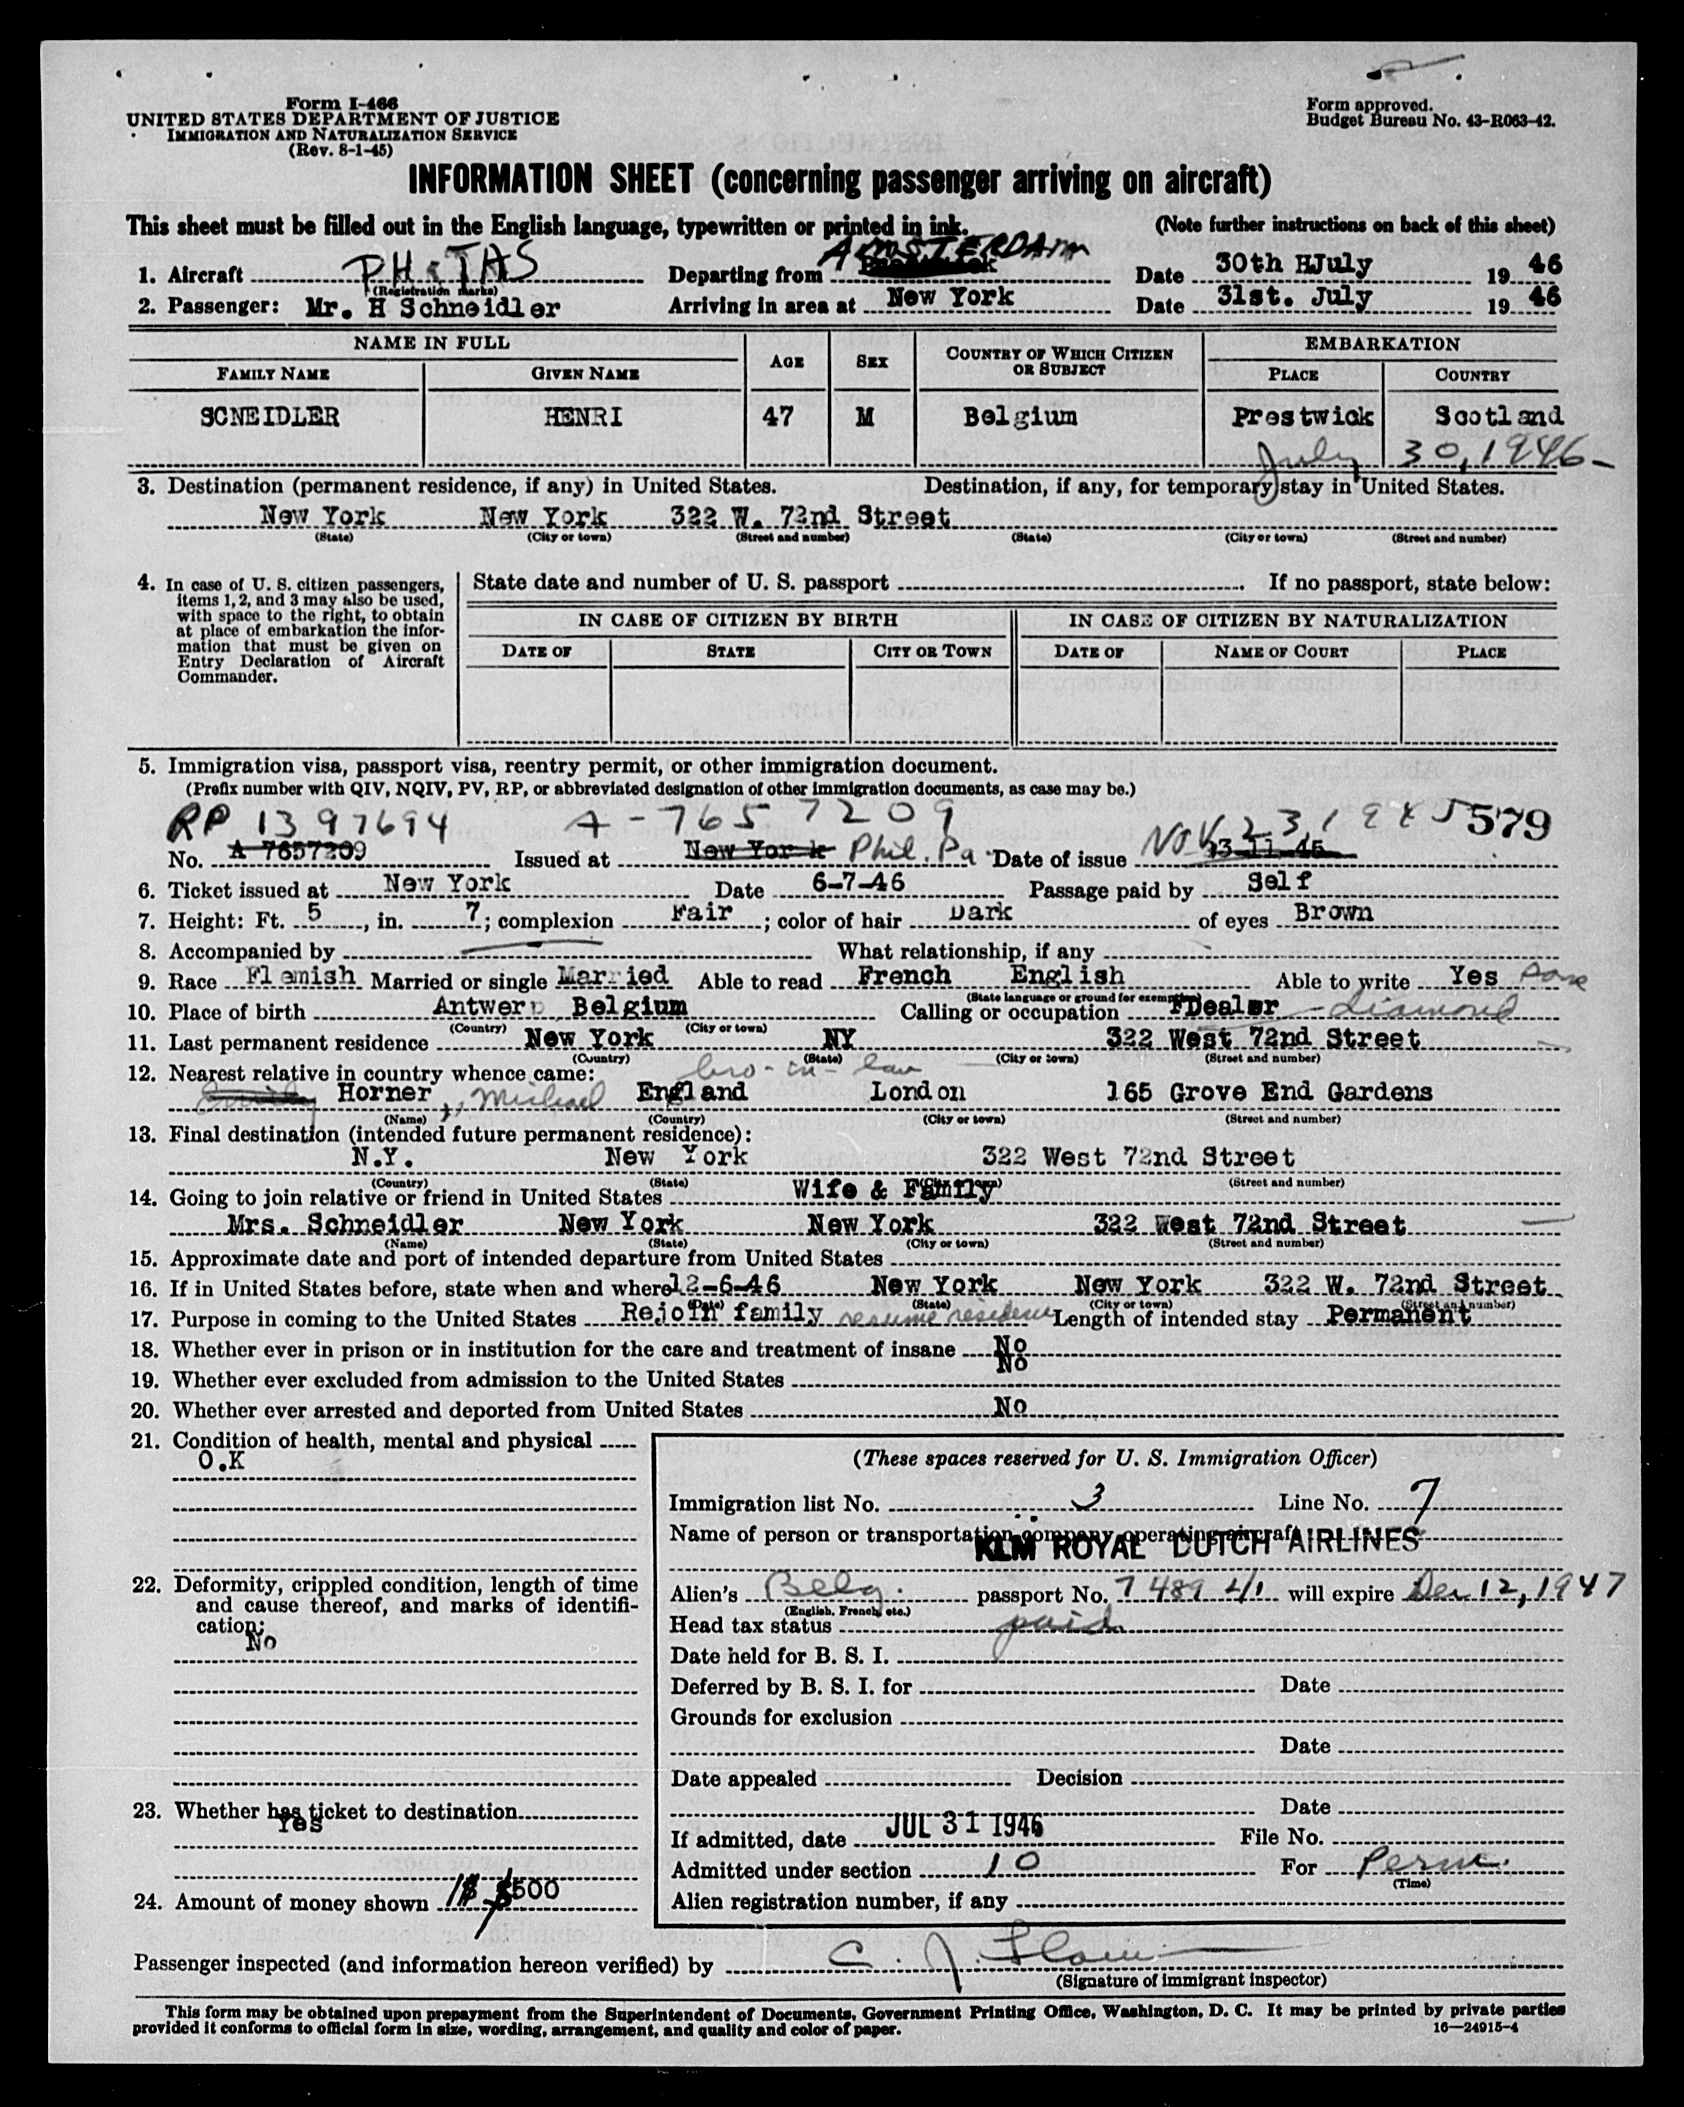 Form I-466
UNITED STATES DEPARTMENT OF JUSTICE
IMMIGRATION AND NATURALIZATION SERVICE
(Rev. 8-1-45)
Form approved.
Budget Bureau No. 43-R063-42.
INFORMATION SHEET (concerning passenger arriving on aircraft)
This sheet must be filled out in the English language, typewritten or printed in ink. (Note further instructions on back of this sheet)
1. Aircraft PH-TAS (Registration marks) Departing from AMSTERDAM Date 30th HJuly 1946
2. Passenger: Mr. H Schneidler Arriving in area at New York Date 31st. July 1946
NAME IN FULL AGE SEX COUNTRY OF WHICH CITIZEN OR SUBJECT EMBARKATION
FAMILY NAME GIVEN NAME PLACE COUNTRY
SCNEIDLER HENRI 47 M Belgium Prestwick Scotland
July 30, 1946-
3. Destination (permanent residence, if any) in United States. Destination, if any, for temporary stay in United States.
New York New York 322 W. 72nd Street
(State) (City or town) (Street and number) (State) (City or town) (Street and number)
4. In case of U. S. citizen passengers, items 1, 2, and 3 may also be used, with space to the right, to obtain at place of embarkation the information that must be given on Entry Declaration of Aircraft Commander.
State date and number of U. S. passport . If no passport, state below:
IN CASE OF CITIZEN BY BIRTH IN CASE OF CITIZEN BY NATURALIZATION
DATE OF STATE CITY OR TOWN DATE OF NAME OF COURT PLACE
5. Immigration visa, passport visa, reentry permit, or other immigration document.
(Prefix number with QIV, NQIV, PV, RP, or abbreviated designation of other immigration documents, as case may be.)
RP 1397694 A-7657209 Nov. 23, 1945 579
No. A 7657209 Issued at New York Phil. Pa Date of issue 23-11-45
6. Ticket issued at New York Date 6-7-46 Passage paid by Self
7. Height: Ft. 5, in. 7; complexion Fair; color of hair Dark of eyes Brown
8. Accompanied by What relationship, if any
9. Race Flemish Married or single Married Able to read French English Able to write Yes same
(State language or ground for exemption)
10. Place of birth Antwerp Belgium Calling or occupation Dealer - diamond
(Country) (City or town)
11. Last permanent residence New York NY 322 West 72nd Street
(Country) (State) (City or town) (Street and number)
12. Nearest relative in country whence came: bro-in-law
Horner, Michael England London 165 Grove End Gardens
(Name) (Country) (City or town) (Street and number)
13. Final destination (intended future permanent residence):
N.Y. New York 322 West 72nd Street
(Country) (State) (City or town) (Street and number)
14. Going to join relative or friend in United States Wife & Family
Mrs. Schneidler New York New York 322 West 72nd Street
(Name) (State) (City or town) (Street and number)
15. Approximate date and port of intended departure from United States
16. If in United States before, state when and where 12-6-46 New York New York 322 W. 72nd Street
(Date) (State) (City or town) (Street and number)
17. Purpose in coming to the United States Rejoin family resume residence Length of intended stay Permanent
18. Whether ever in prison or in institution for the care and treatment of insane No
19. Whether ever excluded from admission to the United States No
20. Whether ever arrested and deported from United States No
21. Condition of health, mental and physical
O.K
22. Deformity, crippled condition, length of time and cause thereof, and marks of identification:
No
23. Whether has ticket to destination
Yes
24. Amount of money shown $500
(These spaces reserved for U. S. Immigration Officer)
Immigration list No. 3 Line No. 7
Name of person or transportation company operating aircraft
KLM ROYAL DUTCH AIRLINES
Alien's Belg. passport No. 7489 41 will expire Dec 12, 1947
(English, French, etc.)
Head tax status paid
Date held for B. S. I.
Deferred by B. S. I. for Date
Grounds for exclusion
Date
Date appealed Decision
Date
If admitted, date JUL 31 1946 File No.
Admitted under section 10 For Perm.
(Time)
Alien registration number, if any
Passenger inspected (and information hereon verified) by C. J.
(Signature of immigrant inspector)
This form may be obtained upon prepayment from the Superintendent of Documents, Government Printing Office, Washington, D. C. It may be printed by private parties
provided it conforms to official form in size, wording, arrangement, and quality and color of paper. 16—24915-4